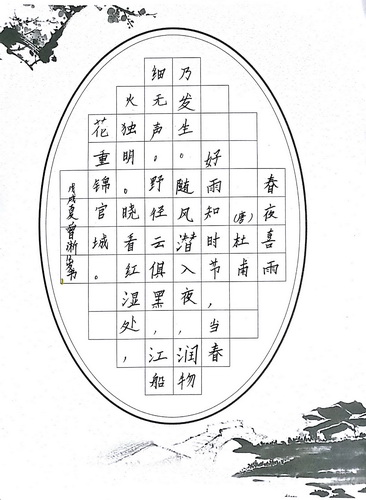 春夜喜雨
(唐)杜甫
好雨知时节,当春
乃发生。随风潜入夜,润物
细无声。野径云俱黑,江船
火独明。晓看红湿处,
花重锦官城。
戊戌夏曾